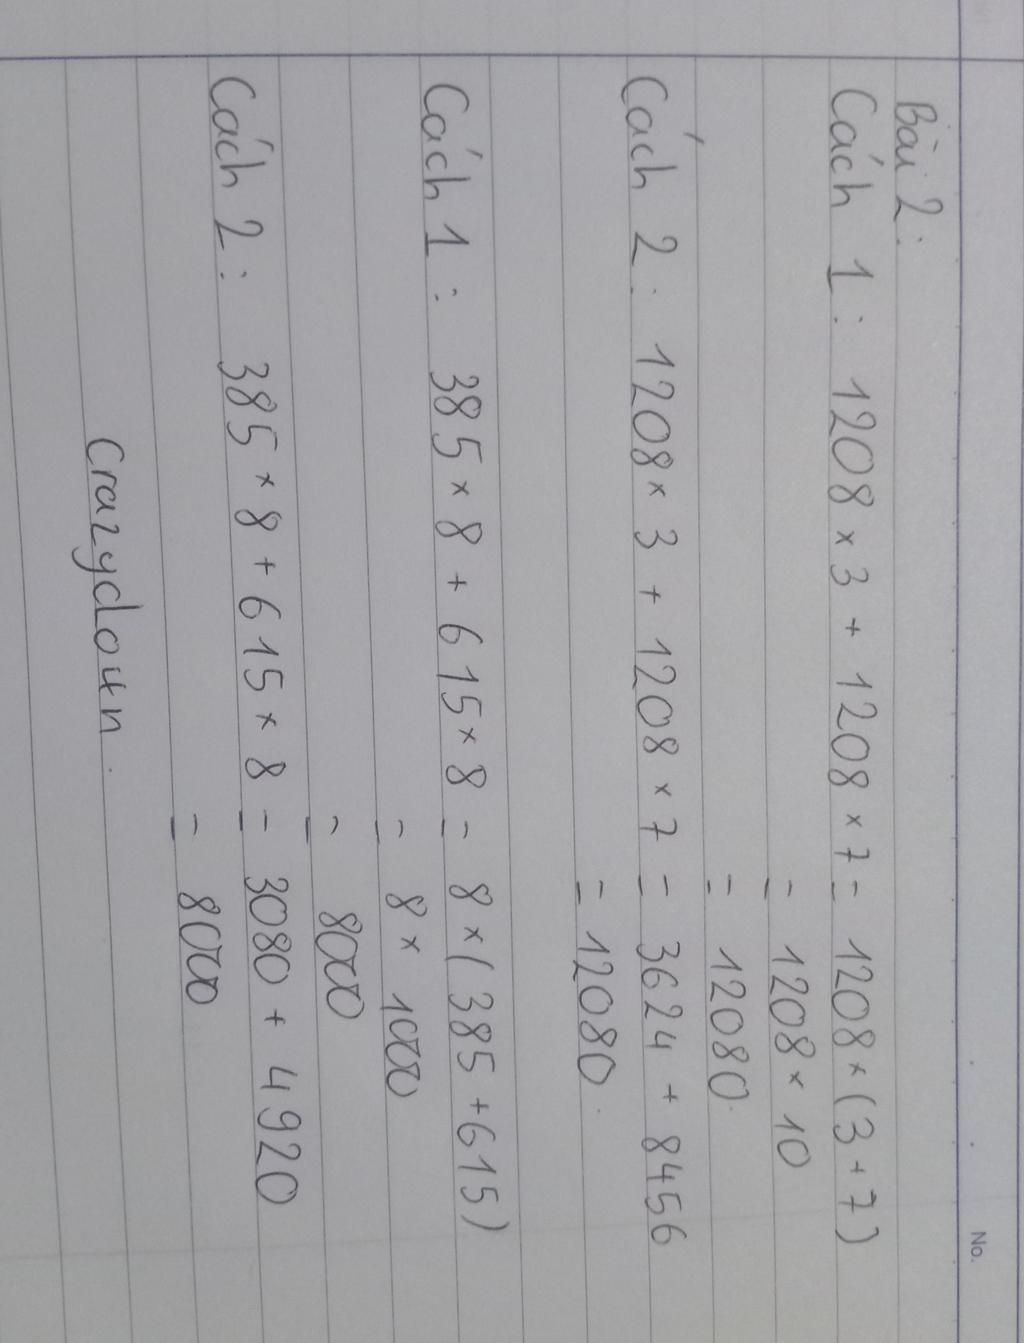 No.
Bài 2:
Cách 1: 1208 × 3 + 1208 × 7 = 1208 × (3 + 7)
= 1208 × 10
= 12080.
Cách 2: 1208 × 3 + 1208 × 7 = 3624 + 8456
= 12080.
Cách 1: 385 × 8 + 615 × 8 = 8 × (385 + 615)
= 8 × 1000
= 8000
Cách 2: 385 × 8 + 615 × 8 = 3080 + 4920
= 8000